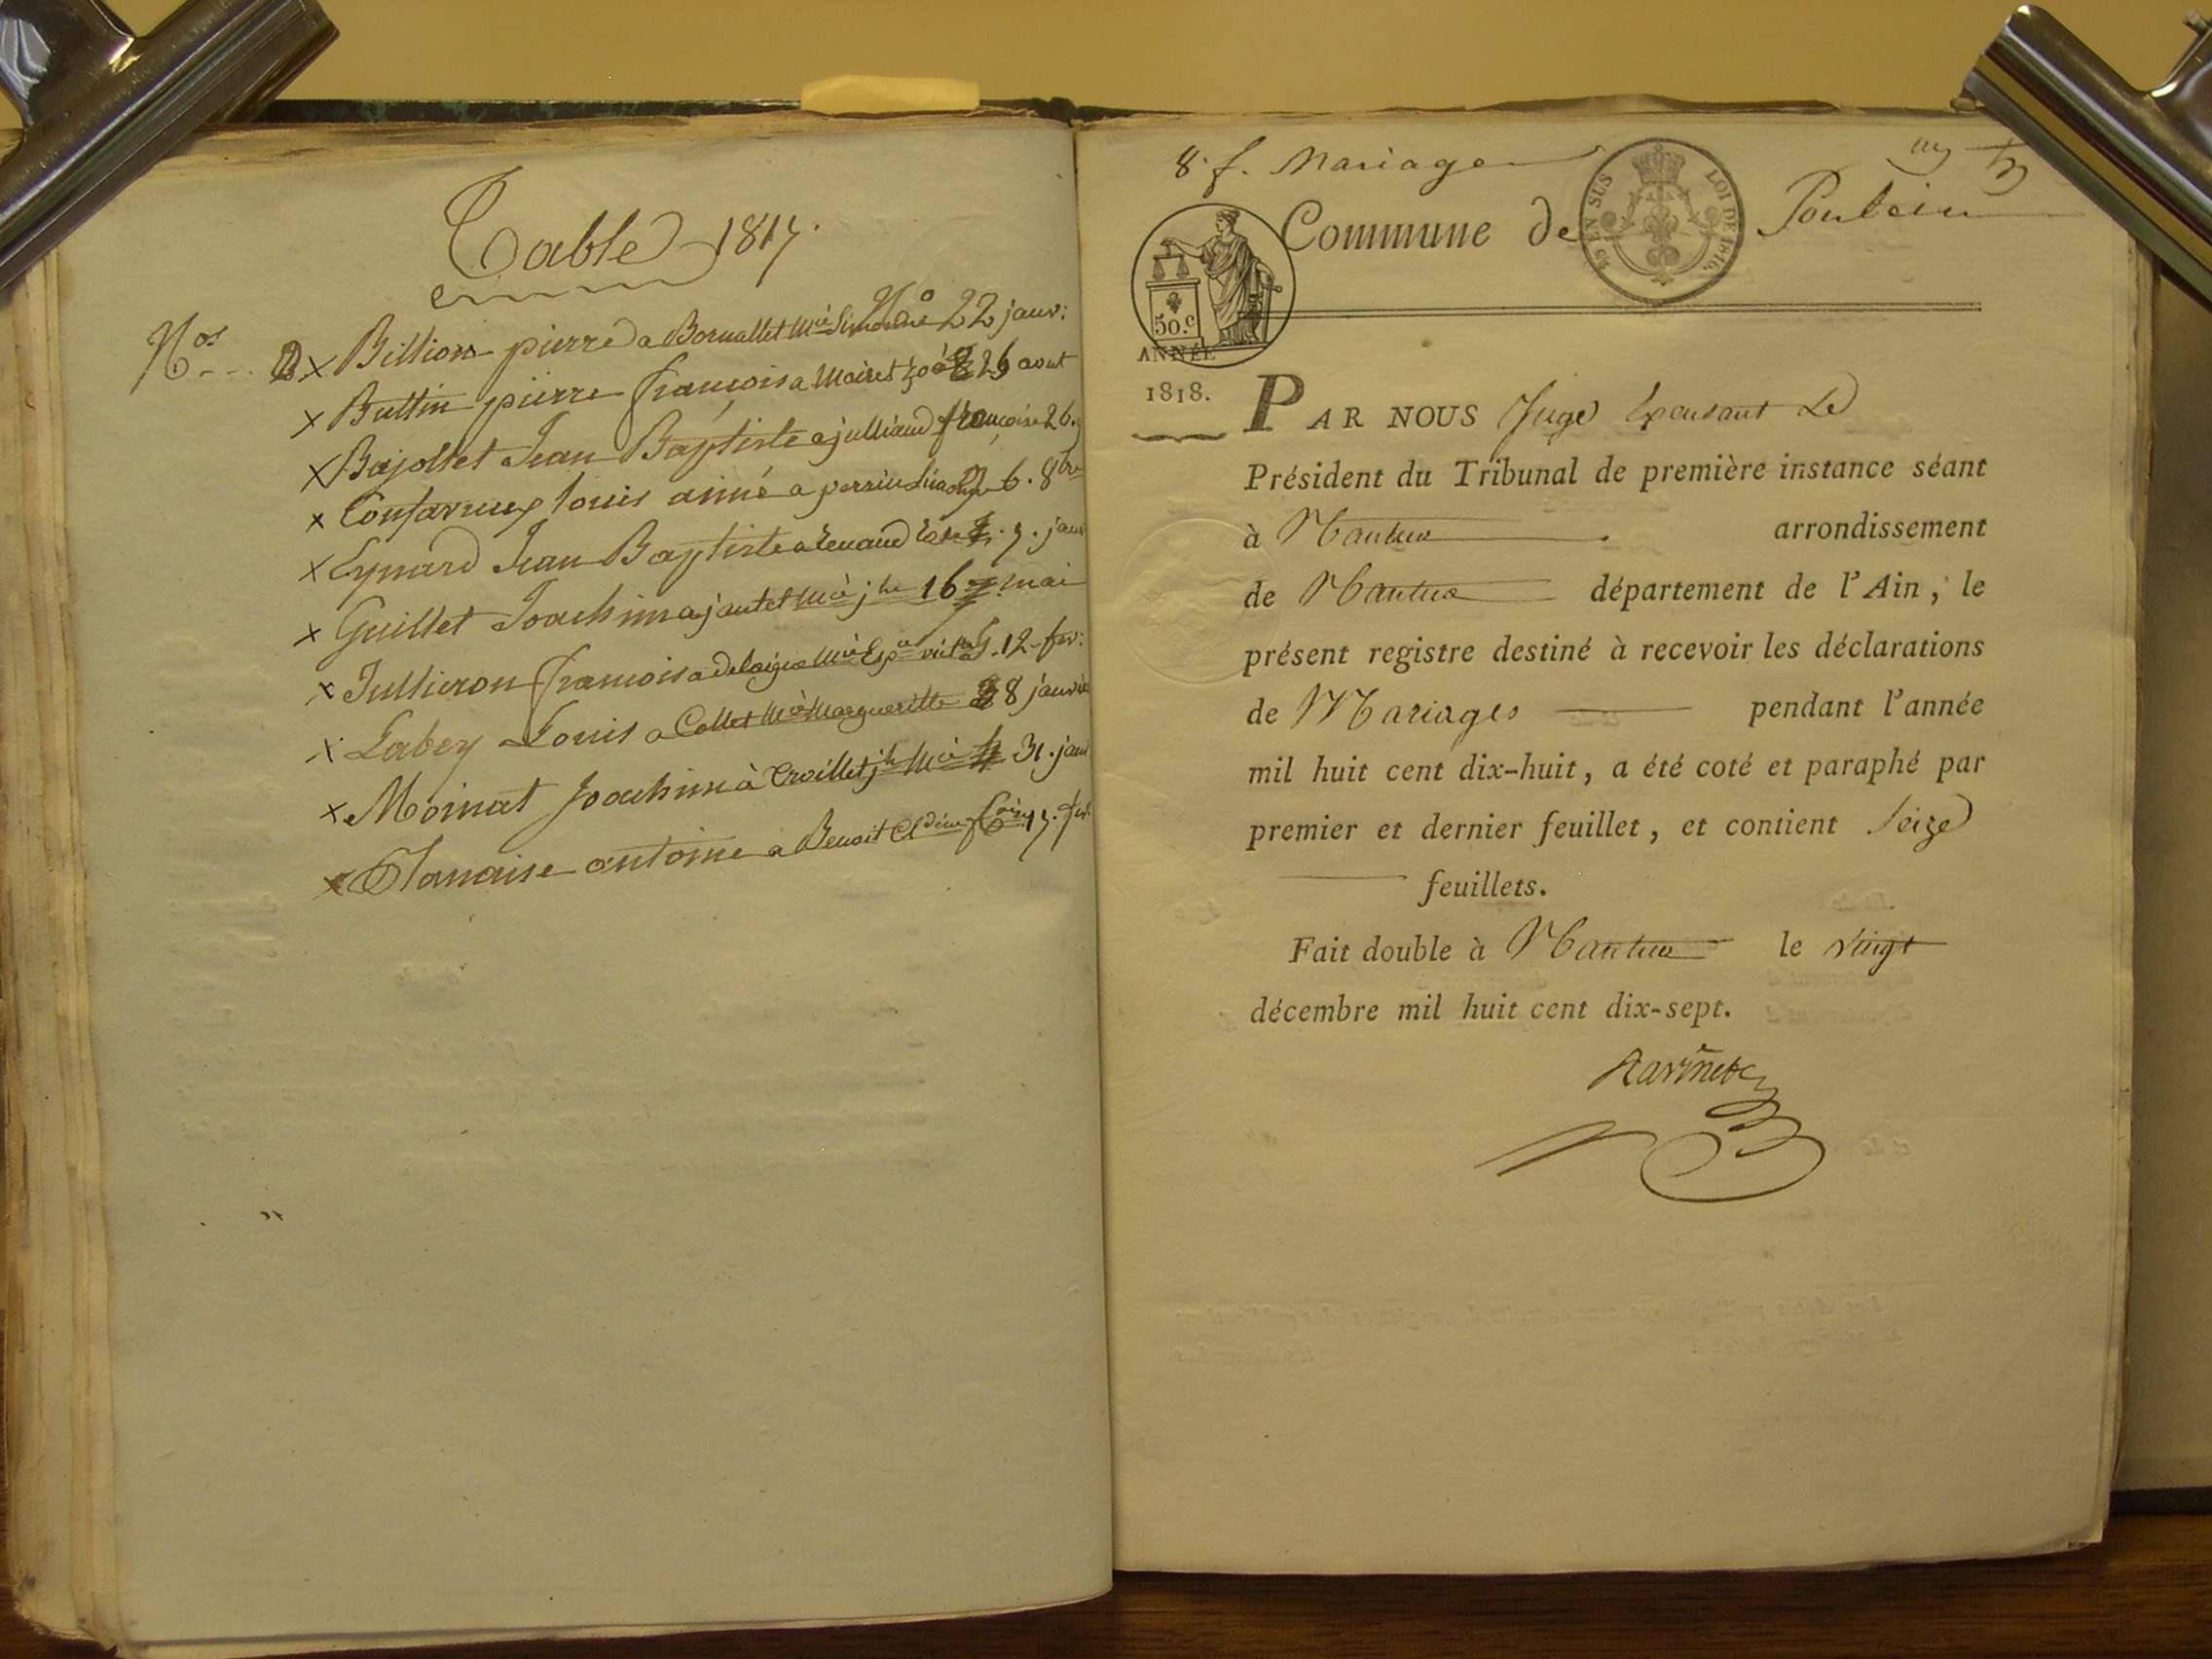 Table 1817.
Nos x Billion pierre a Bornallet Mie Simondne No 22 janv:
x Buttin pierre françois a Mairet 26 aout
x Bajollet Jean Baptiste a julliand françoise 26.
x louis aimé a perrin 6. 8bre
x Eynard Jean Baptiste a Renaud 7. janv
x Guillet Joachim a jantet Mie jhe 16 mai
x Jullieron françois a delaigue Mie 12 fev:
x Labey Louis a Collet Mie Margueritte 8 janvier
x Moinat Joachim à Croillet jhe Mie 31. janv
x antoine a Benoit 17. fev.
8. f. Mariage
Commune de Poncin
15 EN SUS LOI DE 1816.
50.c
ANNÉE
1818.
PAR NOUS Juge Exersant Le
Président du Tribunal de première instance séant
à Nantua arrondissement
de Nantua département de l'Ain, le
présent registre destiné à recevoir les déclarations
de Mariages pendant l'année
mil huit cent dix-huit, a été coté et paraphé par
premier et dernier feuillet, et contient Seize
feuillets.
Fait double à Nantua le vingt
décembre mil huit cent dix-sept.